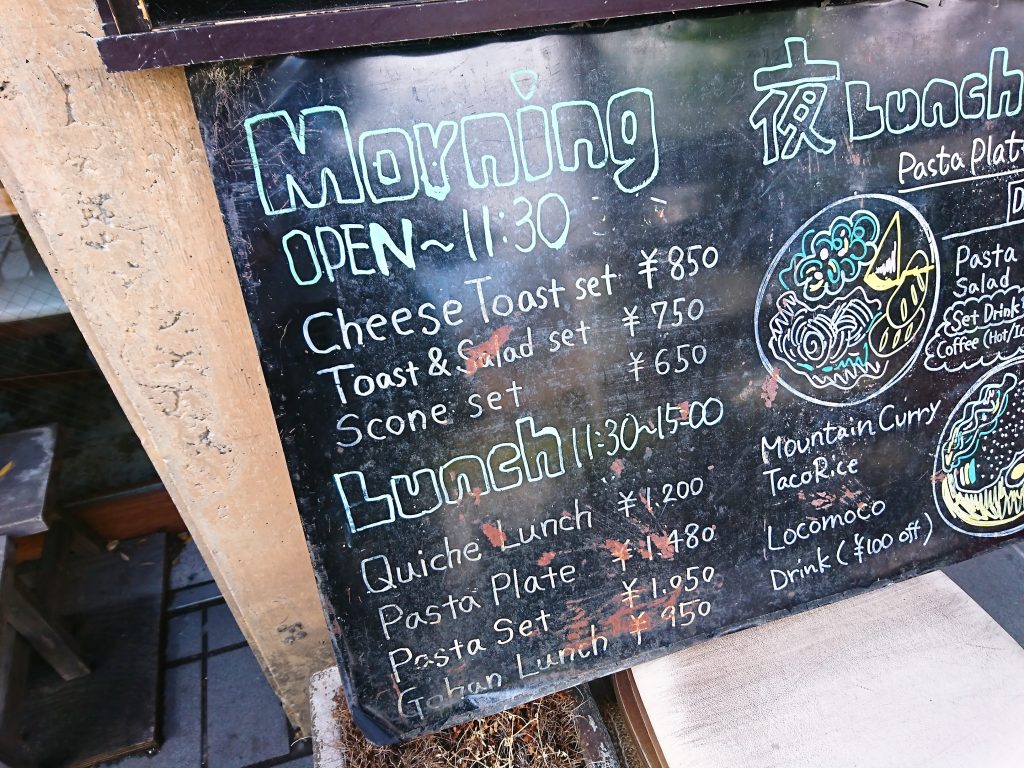 Morning
OPEN～11:30
Cheese Toast set ¥850
Toast & Salad set ¥750
Scone set ¥650
Lunch 11:30～15:00
Quiche Lunch ¥1.200
Pasta Plate ¥1.480
Pasta Set ¥1.050
Gohan Lunch ¥950
夜 Lunch
Pasta
Pasta
Salad
Set Drink
Coffee (Hot/
Mountain Curry
Taco Rice
Locomoco
Drink (¥100 off)